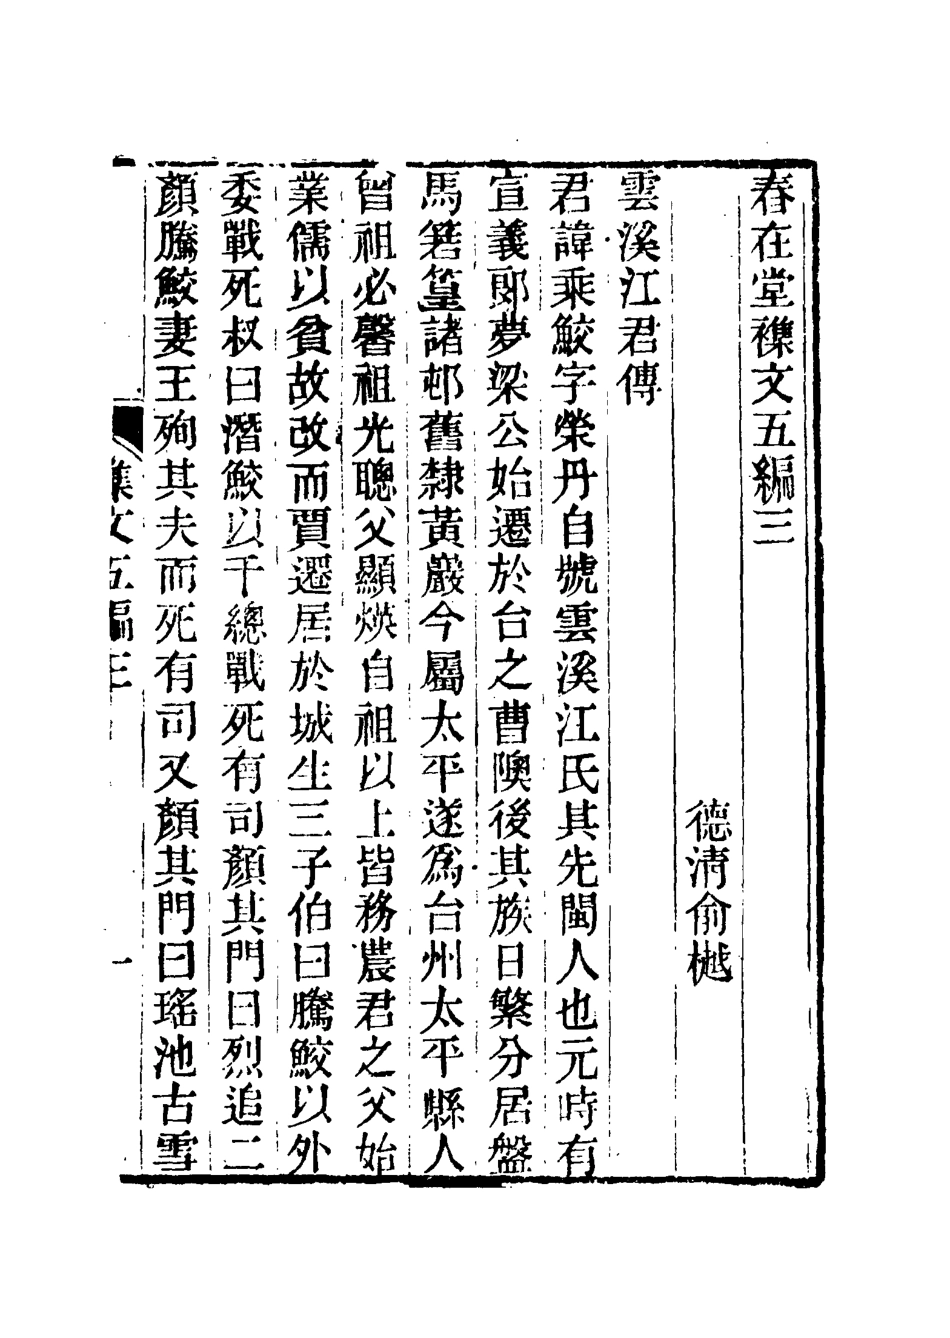 春在堂襍文五編三
德清俞樾
雲溪江君傳
君諱乘鮫字榮丹自號雲溪江氏其先閩人也元時有
宣義郎夢梁公始遷於台之曹隩後其族日繁分居盤
馬箬篁諸邨舊隸黃巖今屬太平遂爲台州太平縣人
曾祖必馨祖光聰父顯煐自祖以上皆務農君之父始
業儒以貧故改而賈遷居於城生三子伯曰騰鮫以外
委戰死叔曰潛鮫以千總戰死有司顏其門曰烈追二
顏騰鮫妻王殉其夫而死有司又顏其門曰瑤池古雪
集文五編三
一